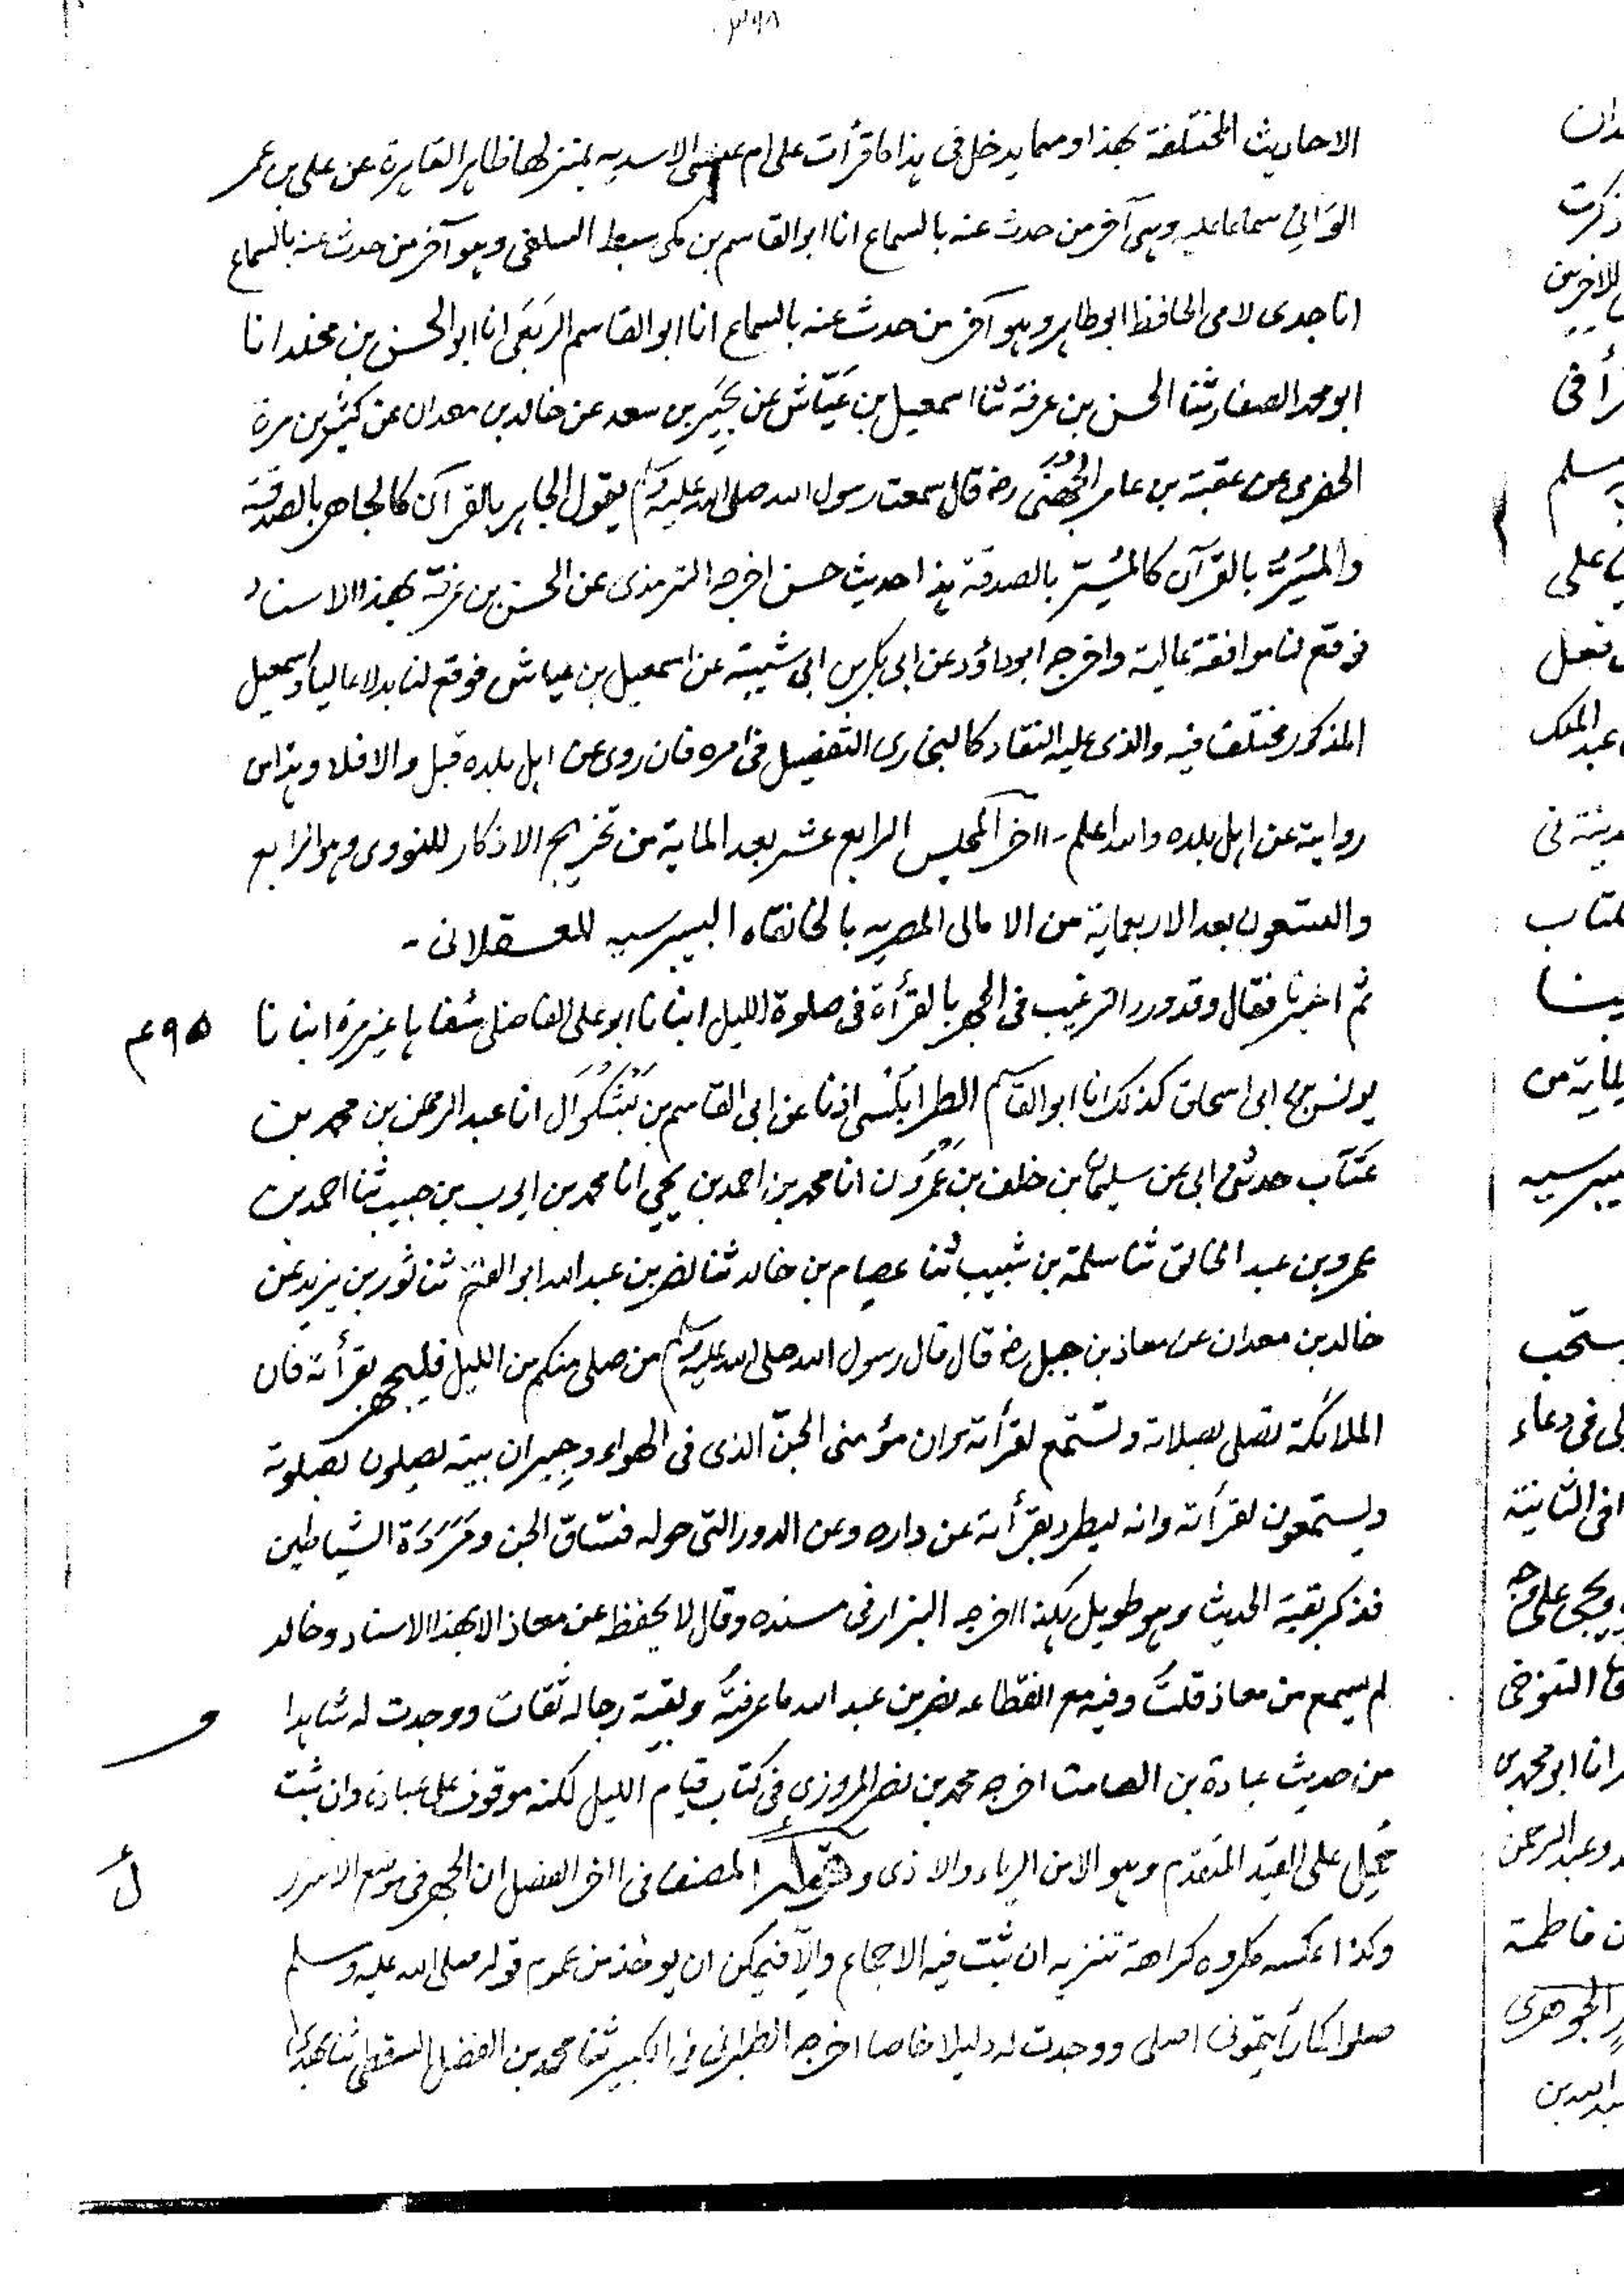 ٣٩٨
الاحاديث المختلفة بهذا ومما يدخل فى هذا ما قرأت على ام عيسى الاسديه بمنزلها ظاهر القاهرة عن على بن عمر
الوانى سماعا عليه وهى آخر من حدث عنه بالسماع انا ابو القاسم بن مكى سبط السلفى وهو آخر من حدث عنه بالسماع
انا جدى لامى الحافظ ابو طاهر وهو آخر من حدث عنه بالسماع انا ابو القاسم الربعى انا ابو الحسن بن مخلد انا
ابو محمد الصفار ثنا الحسن بن عرفة ثنا اسمعيل بن عَيّاش عن بَحِير بن سعد عن خالد بن معدان عن كثير بن مرة
الحضرمى عن عقبة بن عامر الجُهَنى رضـ قال سمعت رسول الله صلى الله عليه وسلم يقول الجاهر بالقرآن كالجاهر بالصدقة
والمُسِرُّ بالقرآن كالمُسِرّ بالصدقة هذا حديث حسن اخرجه الترمذى عن الحسن بن عرفة بهذا الاسناد
فوقع لنا موافقة عالية واخرجه ابو داؤد عن ابى بكر بن ابى شيبة عن اسمعيل بن عياش فوقع لنا بدلا عاليا واسمعيل
المذكور مختلف فيه والذى عليه النقاد كالبخارى التفصيل فى امره فان روى عن اهل بلده قبل والا فلا وهذا من
رواية عن اهل بلده والله اعلم ۔ اآخر المجلس الرابع عشر بعد الماية من تخريج الاذكار للنووى وهو الرابع
والتسعون بعد الاربعماية من الامالى المصريه بالخانقاه البيبرسيه للعسقلانى ۔
ثم اخبرنا فقال وقد ورد الترغيب فى الجهر بالقرأة فى صلوة الليل انبانا ابو على الفاضلى شفاها غير مرة انبانا ٤٩٥ م
يونس بن ابى اسحاق كذلك انا ابو القاسم الطرابلسى اذنا عن ابى القاسم بن بَشْكُوَال انا عبد الرحمن بن محمد بن
عتّاب حدثنى ابى عن سليمان بن خلف بن عَمْرُون انا محمد بن احمد بن يحيى انا محمد بن ايوب بن حبيب ثنا احمد بن
عمرو بن عبد الخالق ثنا سلمة بن شبيب ثنا عصام بن خالد ثنا نضر بن عبد الله ابو الفتح ثنا ثور بن يزيد عن
خالد بن معدان عن معاذ بن جبل رضـ قال قال رسول الله صلى الله عليه وسلم من صلى منكم من الليل فليجهر بقرأته فان
الملائكة تصلى بصلاته وتستمع لقرأته وان مؤمنى الجنّ الذى فى الهواء وجِيران بيته يصلون بصلوته
ويستمعون لقرأته وانه ليطرد بقرأته عن داره وعن الدور التى حوله فسّاق الجن ومَرَدَة الشياطين
فذكر بقية الحديث وهو طويل هكذا اخرجه البزار فى مسنده وقال لا يحفظ عن معاذ الا بهذا الاسناد وخالد
لم يسمع من معاذ قلتُ وفيه مع انقطاعه نضر بن عبد الله ما عرفتُه وبقية رجاله ثقات ووجدت له شاهدا
من حديث عبادة بن الصامت اخرجه محمد بن نصر المروزى فى كتاب قيام الليل لكنه موقوف على عبادة وان ثبت
حُمِل على القَيد المتقدّم وهو الامن الرياء والاذى وقوله المصنف فى اآخر الفصل ان الجهر فى موضع الاسرار
وكذا عكسه مكروه كراهة تنزيه ان ثبت فيه الاجماع والّا فيمكن ان يوخذ من عموم قوله صلى الله عليه وسلم
صلوا كما رأيتمونى اصلى ووجدت له دليلا خاصا اخرجه الطبرانى فى الكبير ثنا محمد بن الفضل السقطى ثنا
ذكرت
للآخرين
مسلم
على
عبد الملك
يستحب
فى دعاء
فى الثانية
التنوخى
وعبد الرحمن
فاطمة
الجوهرى